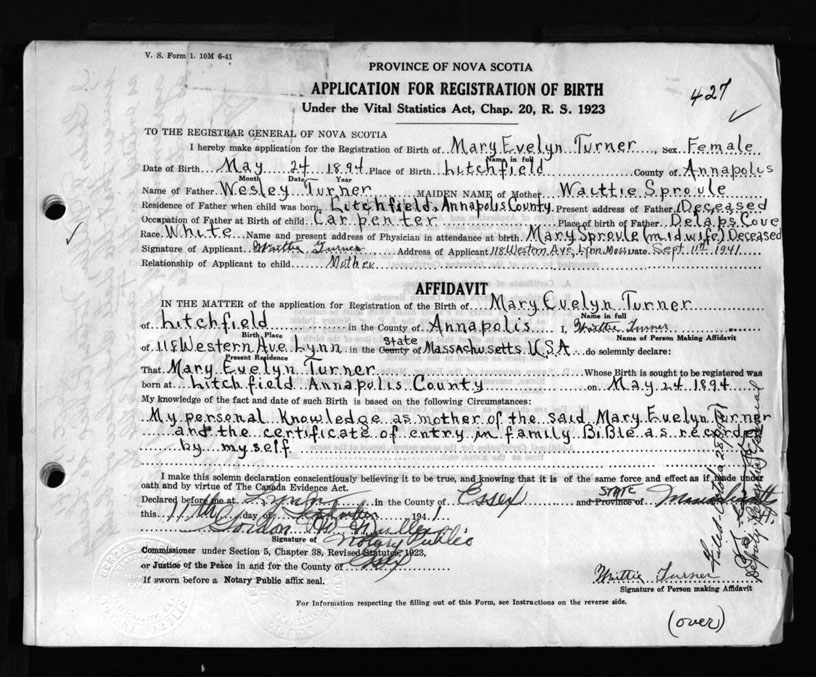 V. S. Form 1. 10M 6-41
PROVINCE OF NOVA SCOTIA
APPLICATION FOR REGISTRATION OF BIRTH
427
Under the Vital Statistics Act, Chap. 20, R. S. 1923
TO THE REGISTRAR GENERAL OF NOVA SCOTIA
I hereby make application for the Registration of Birth of Mary Evelyn Turner, Sex Female
Name in full
Date of Birth May 24 1894 Place of Birth Litchfield County of Annapolis
Month Date Year
Name of Father Wesley Turner MAIDEN NAME of Mother Waittie Sproule
Residence of Father when child was born Litchfield, Annapolis County. Present address of Father Deceased
Occupation of Father at Birth of child Carpenter Place of birth of Father Delaps Cove
Race White Name and present address of Physician in attendance at birth Mary Sproule (midwife) Deceased
Signature of Applicant Waittie Turner Address of Applicant 118 Western Ave, Lynn, Mass Date Sept 11th 1941
Relationship of Applicant to child Mother
AFFIDAVIT
IN THE MATTER of the application for Registration of the Birth of Mary Evelyn Turner
Name in full
of Litchfield in the County of Annapolis I, Waittie Turner
Birth Place Name of Person Making Affidavit
of 118 Western Ave Lynn in the County State of Massachusetts U.S.A do solemnly declare:
Present Residence
That Mary Evelyn Turner Whose Birth is sought to be registered was
born at Litchfield Annapolis County on May 24 1894
My knowledge of the fact and date of such Birth is based on the following Circumstances:
My personal knowledge as mother of the said Mary Evelyn Turner
and the certificate of entry in family Bible as recorded
by myself
I make this solemn declaration conscientiously believing it to be true, and knowing that it is of the same force and effect as if made under
oath and by virtue of The Canada Evidence Act.
Declared before me at Lynn in the County of Essex and Province of STATE Massachusetts
this 11th day of September 1941
Gordon
Signature of Notary Public
Commissioner under Section 5, Chapter 38, Revised Statutes, 1923,
or Justice of the Peace in and for the County of Essex
If sworn before a Notary Public affix seal.
Waittie Turner
Signature of Person making Affidavit
For Information respecting the filling out of this Form, see Instructions on the reverse side.
(over)
Filed
Deputy Registrar General